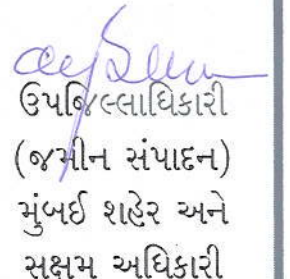 ઉપજિલ્લાધિકારી
(જમીન સંપાદન)
મુંબઈ શહેર અને
સક્ષમ અધિકારી